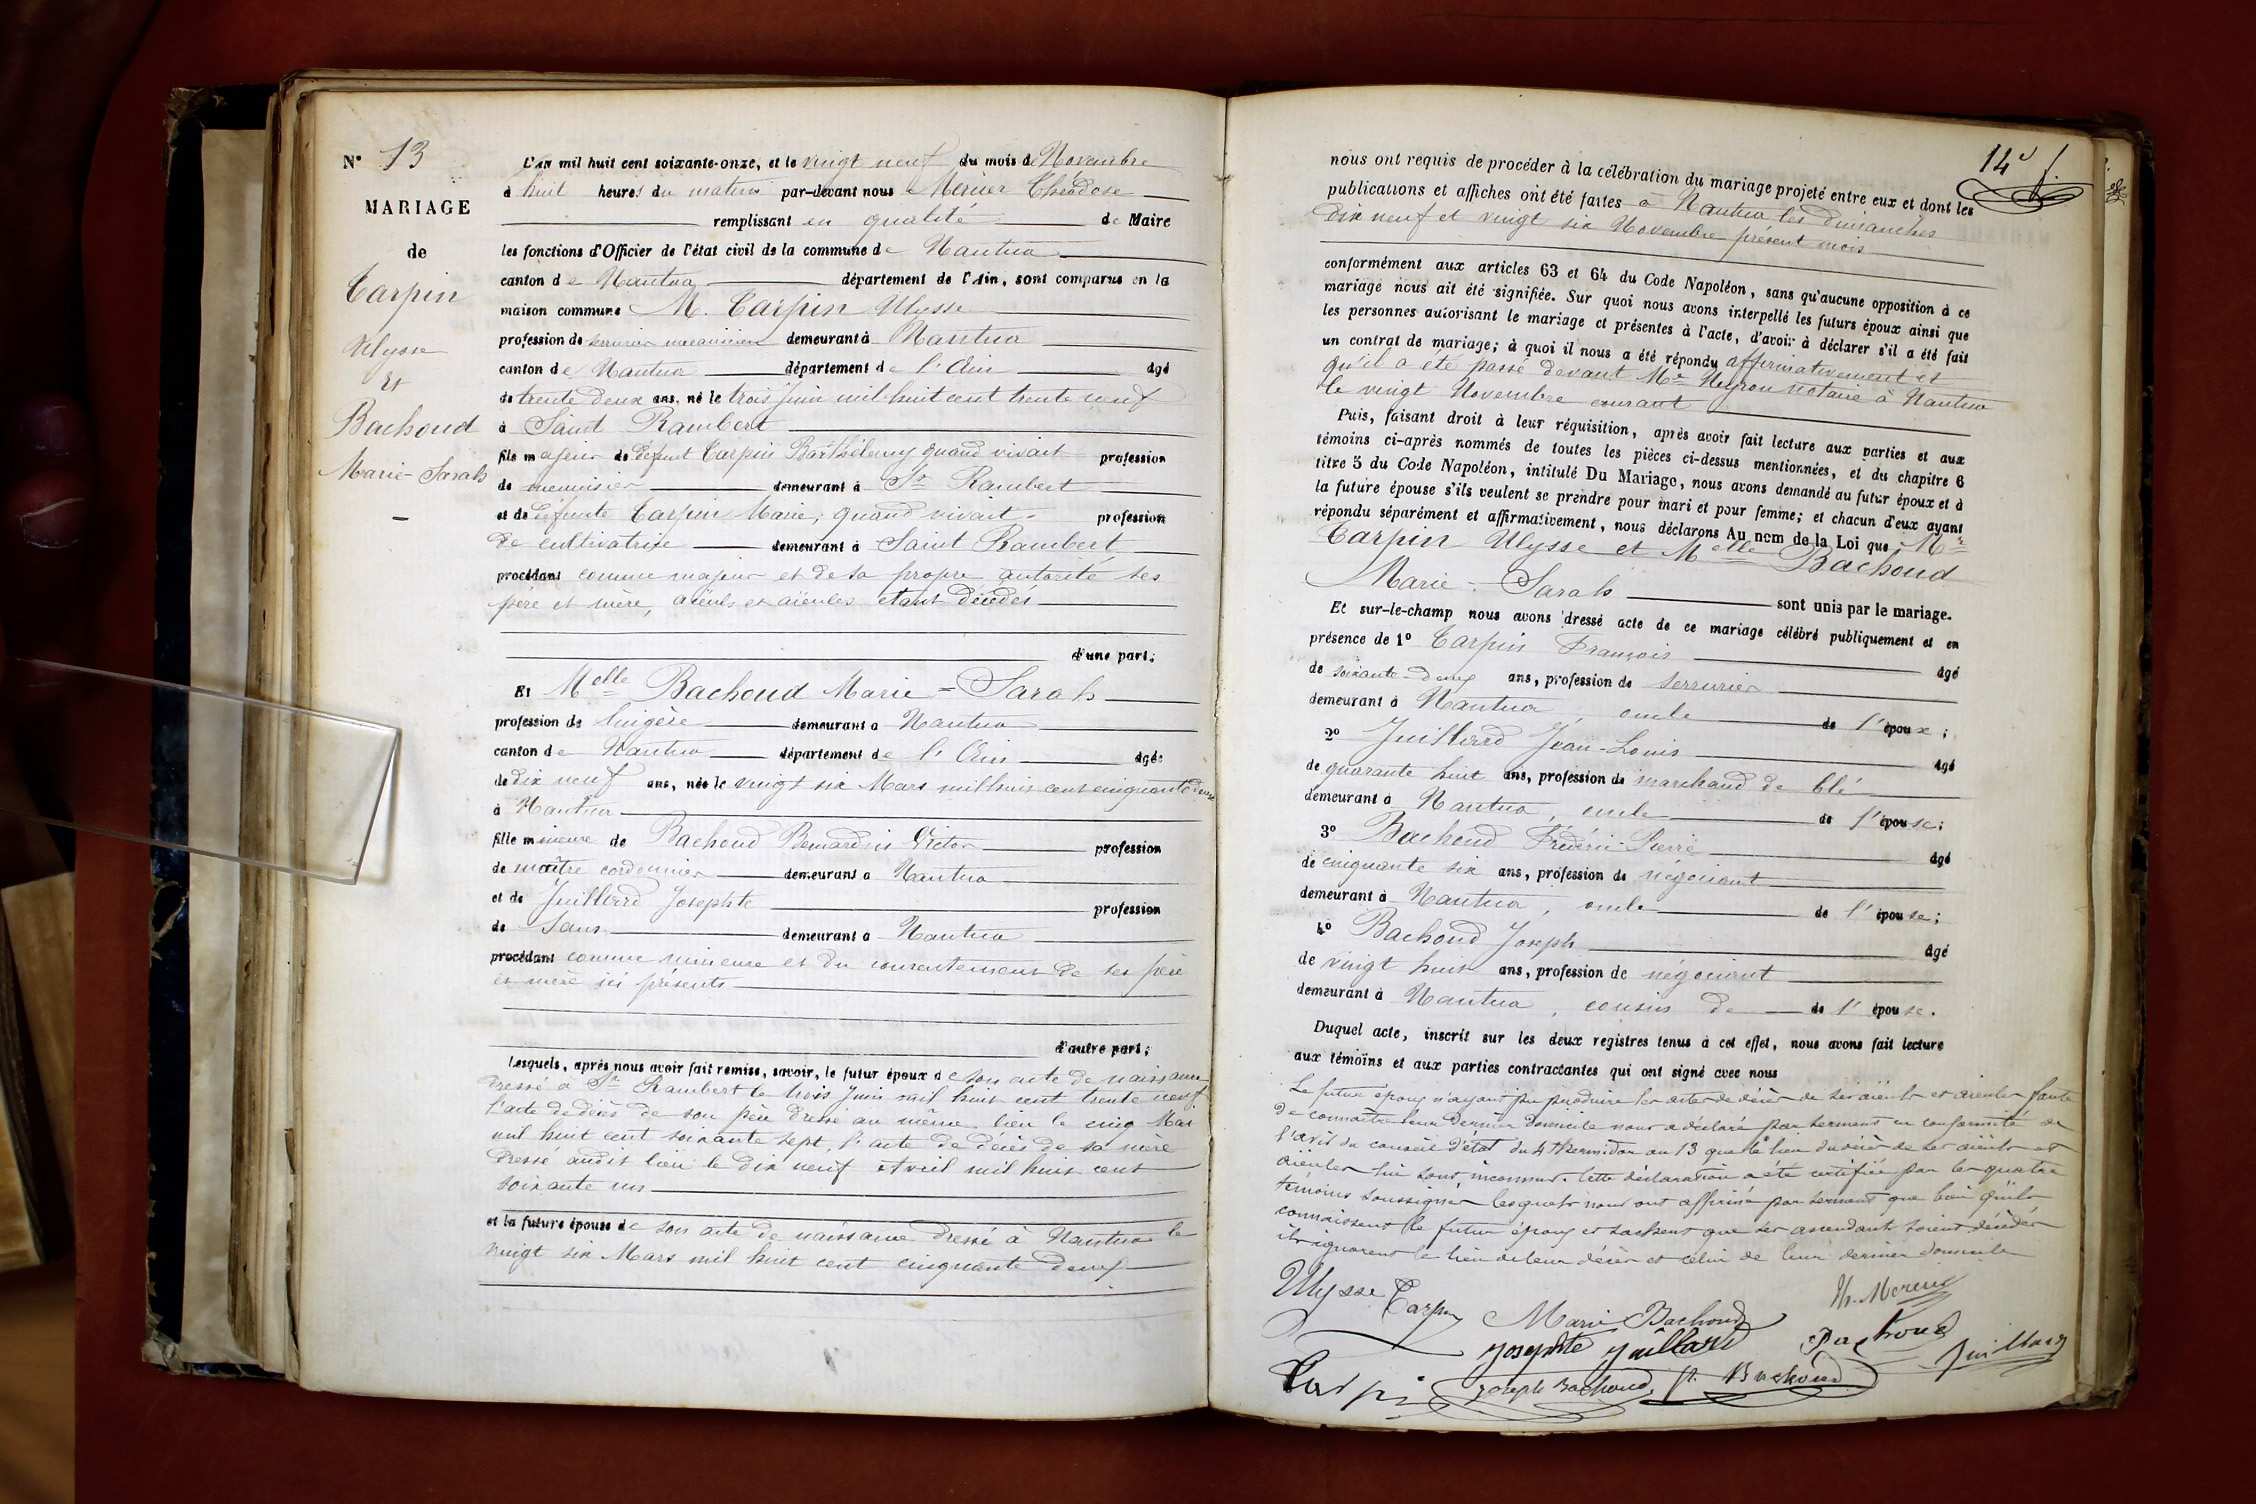 N° 13
MARIAGE
de
Carpin
Ulysse
Et
Bachoud
Marie-Sarah
L'an mil huit cent soixante-onze, et le vingt neuf du mois de Novembre
à huit heures du matin par-devant nous Mercier Théodose
remplissant en qualité de Maire
les fonctions d'Officier de l'état civil de la commune de Nantua
canton de Nantua département de l'Ain, sont comparus en la
maison commune M. Carpin Ulysse
profession de serrurier mécanicien demeurant à Nantua
canton de Nantua département de l'Ain âgé
de trente deux ans, né le trois Juin mil huit cent trente neuf
à Saint Rambert
fils majeur de défunt Carpin Barthélemy quand vivait profession
de menuisier demeurant à St Rambert
et de défunte Carpin Marie, quand vivait profession
de cultivatrice demeurant à Saint Rambert
procédant comme majeur et de sa propre autorité ses
père et mère, aïeuls et aïeules étant décédés
d'une part;
Et Melle Bachoud Marie-Sarah
profession de lingère demeurant à Nantua
canton de Nantua département de l'Ain âgée
de dix neuf ans, née le vingt six Mars mil huit cent cinquante deux
à Nantua
fille mineure de Bachoud Bernardin Victor profession
de maître cordonnier demeurant à Nantua
et de Juillerd Josephte profession
de Sans demeurant à Nantua
procédant comme mineure et du consentement de ses père
et mère ici présents
d'autre part;
Lesquels, après nous avoir fait remise, savoir, le futur époux de son acte de naissance
dressé à St Rambert le trois Juin mil huit cent trente neuf
l'acte de décès de son père dressé au même lieu le cinq Mai
mil huit cent soixante sept, l'acte de décès de sa mère
dressé audit lieu le dix neuf Avril mil huit cent
soixante un
et la future épouse de son acte de naissance dressé à Nantua le
vingt six Mars mil huit cent cinquante deux
14e
nous ont requis de procéder à la célébration du mariage projeté entre eux et dont les
publications et affiches ont été faites à Nantua les dimanches
dix neuf et vingt six Novembre présent mois
conformément aux articles 63 et 64 du Code Napoléon, sans qu'aucune opposition à ce
mariage nous ait été signifiée. Sur quoi nous avons interpellé les futurs époux ainsi que
les personnes autorisant le mariage et présentes à l'acte, d'avoir à déclarer s'il a été fait
un contrat de mariage; à quoi il nous a été répondu affirmativement et
qu'il a été passé devant Me Neyron notaire à Nantua
le vingt Novembre courant
Puis, faisant droit à leur réquisition, après avoir fait lecture aux parties et aux
témoins ci-après nommés de toutes les pièces ci-dessus mentionnées, et du chapitre 6
titre 5 du Code Napoléon, intitulé Du Mariage, nous avons demandé au futur époux et à
la future épouse s'ils veulent se prendre pour mari et pour femme; et chacun d'eux ayant
répondu séparément et affirmativement, nous déclarons Au nom de la Loi que Mr
Carpin Ulysse et Melle Bachoud
Marie-Sarah sont unis par le mariage.
Et sur-le-champ nous avons dressé acte de ce mariage célébré publiquement et en
présence de 1° Carpin François âgé
de soixante-deux ans, profession de serrurier
demeurant à Nantua, oncle de l'époux;
2° Juillerd Jean-Louis âgé
de quarante huit ans, profession de marchand de blé
demeurant à Nantua, oncle de l'épouse;
3° Bachoud Frédéric-Pierre âgé
de cinquante six ans, profession de négociant
demeurant à Nantua, oncle de l'épouse;
4° Bachoud Joseph âgé
de vingt huit ans, profession de négociant
demeurant à Nantua, cousin de de l'épouse.
Duquel acte, inscrit sur les deux registres tenus à cet effet, nous avons fait lecture
aux témoins et aux parties contractantes qui ont signé avec nous
Le futur époux n'ayant pu produire les actes de décès de ses aïeuls et aïeules faute
de connaître leur dernier domicile nous a déclaré par serment en conformité de
l'avis du conseil d'état du 4 thermidor an 13 que le lieu du décès de ses aïeuls et
aïeules lui sont inconnus. Cette déclaration a été certifiée par les quatre
témoins soussignés lesquels nous ont affirmé par serment que bien qu'ils
connaissent le futur époux et sachent que ses ascendants soient décédés
ils ignorent le lieu de leur décès et celui de leur dernier domicile
Ulysse Carpin Marie Bachoud Th. Mercier
Josephte Juillard Bachoud Juillard
Carpin Joseph Bachoud, P. Bachoud